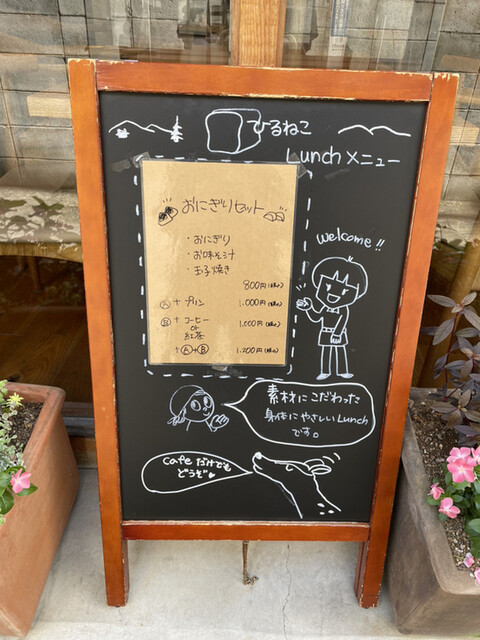 ひるねこ
Lunchメニュー
おにぎりセット
・おにぎり
・お味そ汁
・玉子焼き
800円(税込)
Ⓐ+プリン 1,000円(税込)
Ⓑ+コーヒー
or
紅茶 1,000円(税込)
+Ⓐ+Ⓑ 1,200円(税込)
welcome!!
素材にこだわった
身体にやさしいLunch
です。
cafeだけでも
どうぞ♥